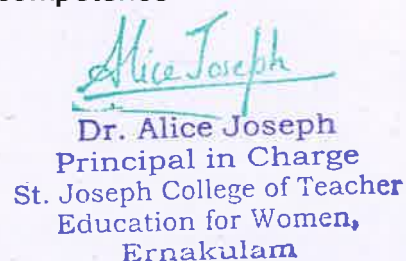 competence
Alice Joseph
Dr. Alice Joseph
Principal in Charge
St. Joseph College of Teacher
Education for Women,
Ernakulam